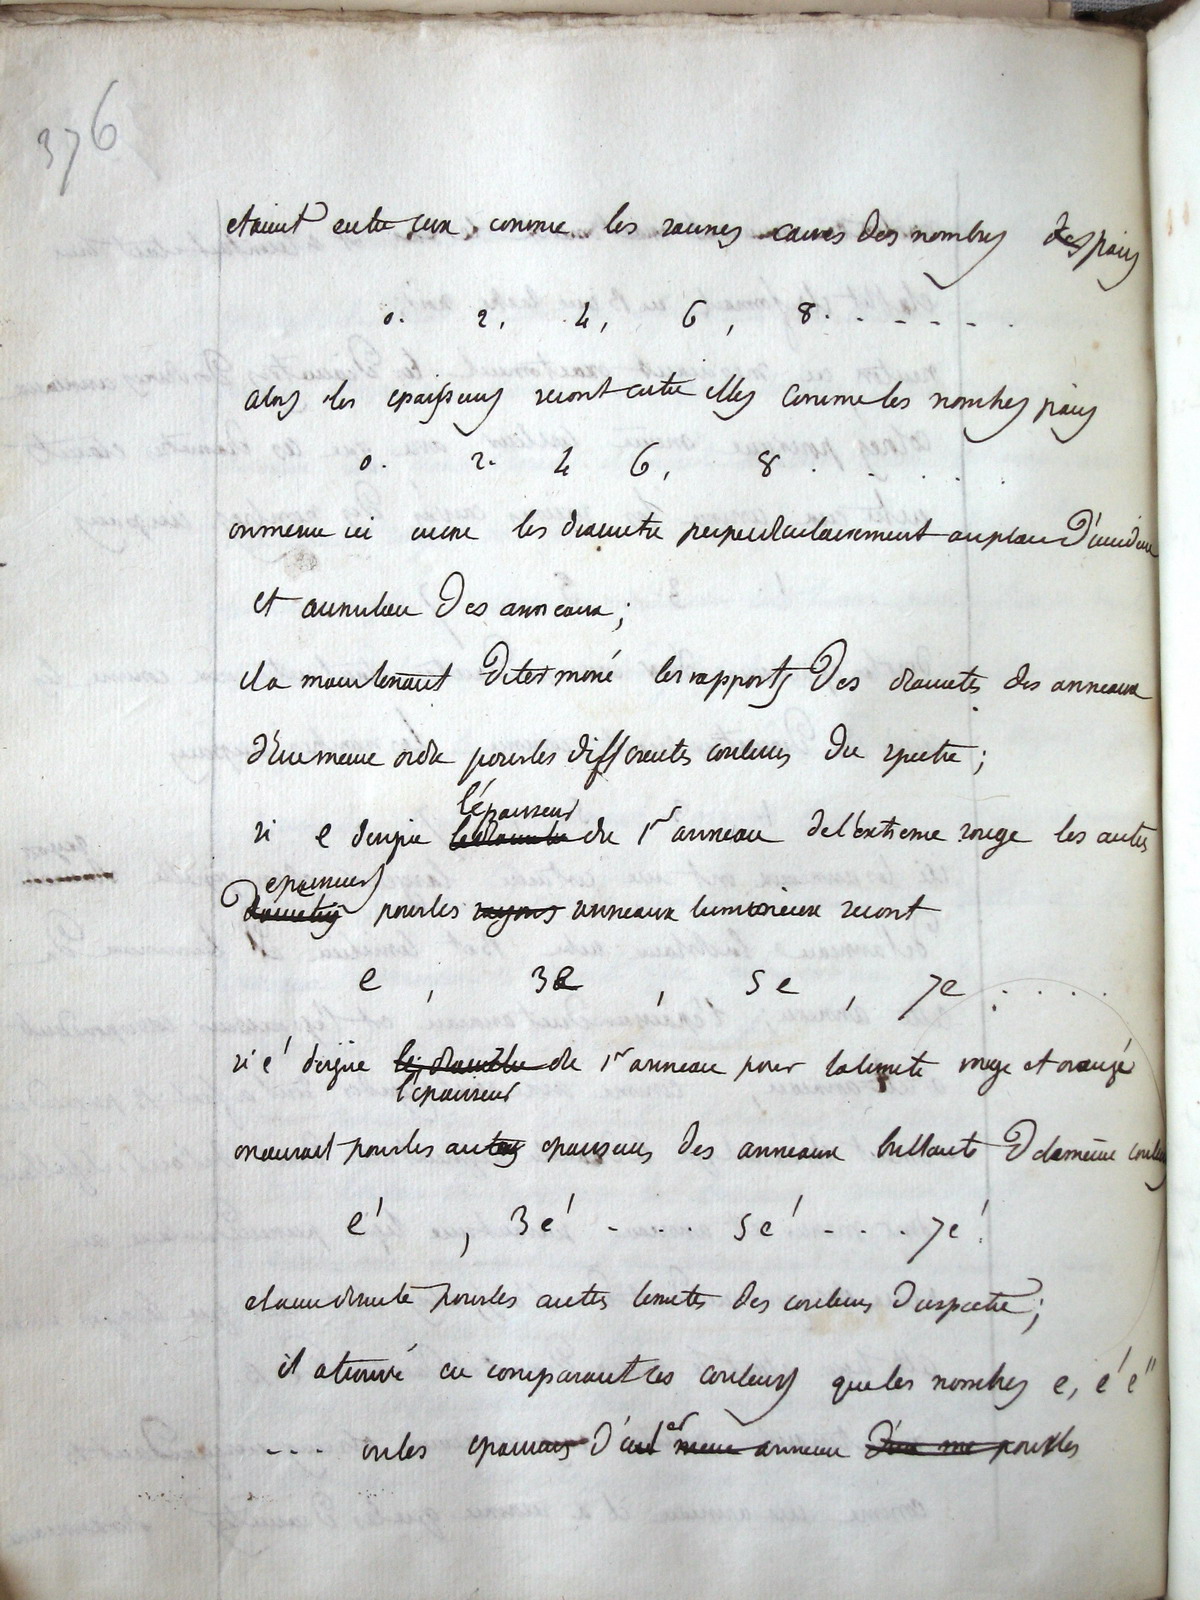 376
etaient entre eux comme les racines carrés des nombres des pairs
0. 2, 4, 6, 8. . - - - - .
alors les epaisseurs seront entre elles comme les nombres pairs
0. 2. 4 6, 8 . . . . .
on mesure ici encore les diametre perpendiculairement au plan d'incidence
et au milieu des anneaux ;
il a maintenant determiné les rapports des diametres des anneaux
d'un meme ordre pour les differentes couleurs du spectre ;
l'épaisseur
si e designe le diametre du 1er anneau de l'extreme rouge les autres
epaisseurs
diametres pour les rayons anneaux lumineux seront
e , 3e , 5e , 7e . . . .
si e' désigne le diametre du 1er anneau pour la limite rouge et orangé
l'épaisseur
on aurait pour les autres epaisseurs des anneaux brillants de la même couleur
e' , 3e' - . . . 5e' - . . . 7e'.
et ainsi de suite pour les autres limites des couleurs du spectre ;
il a trouvé en comparant les couleurs que les nombres e, e' e"
- - - ou les epaisseurs d'un 1er meme anneau d'un me pour les